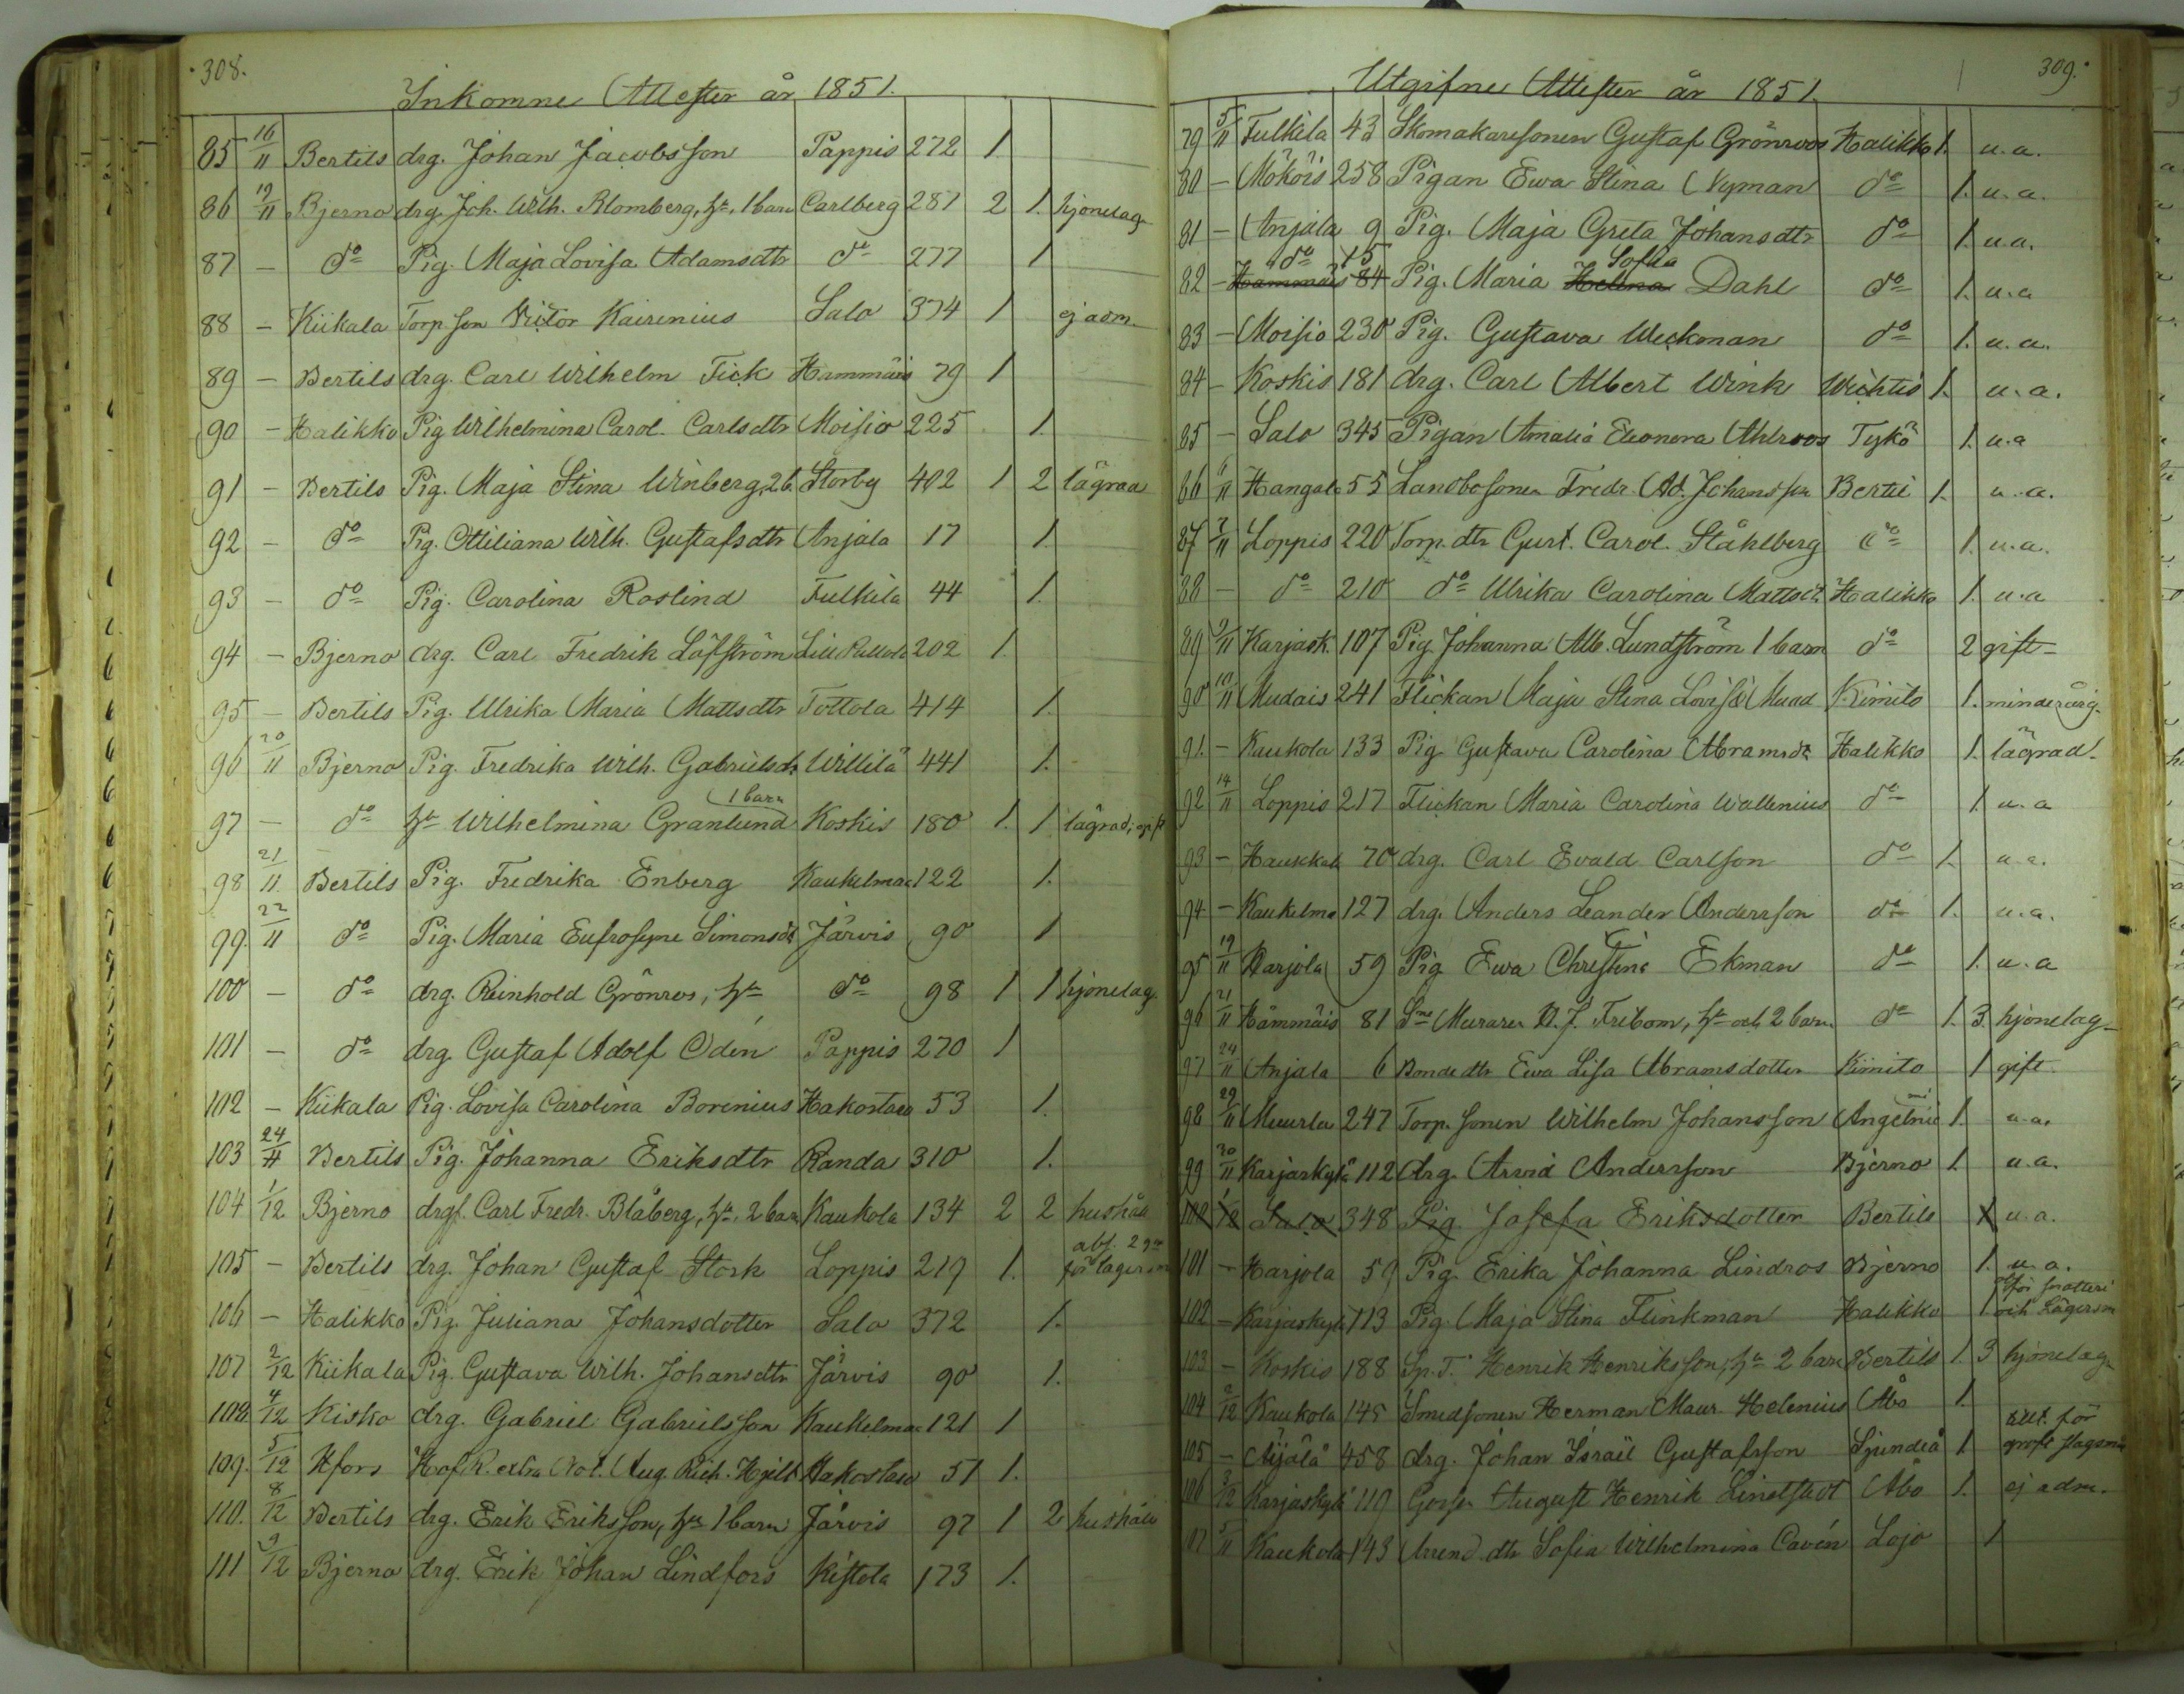 308.
Inkomne Attester år 1851.
85 16/11 Bertils drg. Johan Jacobsson Pappis 272 1
86 19/11 Bjerno drg. Joh. Wilh. Blomberg, hu, 1 barn Carlberg 281 2 1. hjonelag
87 – do Pig. Maja Lovisa Adamsdtr do 277 1
88 – Kiikala Torp son Victor Kairenius Salo 374 1 ej adm.
89 – Bertils drg. Carl Wilhelm Fick Hammäis 79 1
90 – Halikko Pig Wilhelmina Carol. Carlsdtr Moisio 225 1.
91 – Bertils Pig. Maja Stina Winberg, 2 b. Storby 402 1 2 lägrad
92 – do Pig. Ottiliana Wilh. Gustafsdtr Anjala 17 1.
93 – do Pig. Carolina Roslind Fulkila 44 1.
94 – Bjerno drg. Carl Fredrik Löfström Lill 202 1.
95 – Bertils Pig. Ulrika Maria Mattsdtr Tottola 414 1.
96 20/11 Bjerno Pig. Fredrika Wilh. Gabrielsdr Willilä 441 1.
97 – do hu Wilhelmina Granlund 1 barn Koskis 180 1. 1 lägrad,
98 21/11 Bertils Pig. Fredrika Enberg Kaukelmaa 122 1.
99. 22/11 do Pig. Maria Eufrosyne Simonsdr Järvis 90 1
100 – do drg. Reinhold Grönros, hu do 98 1 1 hjonelag
101 – do drg. Gustaf Adolf Odén Pappis 270 1
102 – Kiikala Pig. Lovisa Carolina Borenius Hakostaro 53 1.
103 24/11 Bertils Pig. Johanna Eriksdtr Randa 310 1.
104 1/12 Bjerno drgl. Carl Fredr. Blåberg, hu, 2 barn Kaukola 134 2 2 hushåll
105 – Bertils drg. Johan Gustaf Stork Loppis 219 1. abs. 2 gr för lägersm
106 – Halikko Pig. Juliana Johansdotter Salo 372 1.
107 2/12 Kiikala Pig. Gustava Wilh. Johansdtr Järvis 90 1.
108. 4/12 Kisko drg. Gabriel Gabrielsson Kaukelmaa 121 1
109. 5/12 Hfors Hof R. extra Not. Aug. Rich. Hjelt Hakostaro 51 1.
110. 8/12 Bertils drg. Erik Eriksson, hu 1 barn Järvis 97 1 2 hushåll
111 9/12 Bjerno drg. Erik Johan Lindfors Kistola 173 1.
309.
Utgifne Attester år 1851.
79 5/11 Fulkila 43 Skomakaresonen Gustaf Grönroos Halikko 1. u.a.
80 – Mököis 258 Pigan Ewa Stina Nyman do 1. u.a.
81 – Anjala 9 Pig. Maja Greta Johansdtr do 1. u.a.
82 – Hammäis do 84 15 Pig. Maria Helena Sofia Dahl do 1. u.a
83 – Moisio 230 Pig. Gustava Weckman do 1. u.a.
84 – Koskis 181 drg. Carl Albert Wink Wichtis 1. u.a.
85 – Salo 345 Pigan Amalia Eleonora Ahlroos Tykö 1. u.a
86 6/11 Hangala 55 Landbosonen Fredr. Ad. Johansson Bertil 1. u.a.
87 7/11 Loppis 220 Torp. dtr Gust. Carol. Ståhlberg do 1. u.a.
88 – do 210 do Ulrika Carolina Mattsdt. Halikko 1. u.a
89 9/11 Karjask. 107 Pig. Johanna Alb. Lundström 1 barn do 2 gift
90 10/11 Mudais 241 Flickan Maja Stina Lovisa Muad Kimito 1. minderårig
91. – Kaukola 133 Pig Gustava Carolina Abramsdr Halikko 1. lägrad.
92 14/11 Loppis 217 Flickan Maria Carolina Wallenius do 1 u.a
93 – Haukkala 70 drg. Carl Evald Carlson do 1. u.a.
94 – Kaukelma 127 drg. Anders Leander Andersson do 1. u.a.
95 19/11 Karjola 59 Pig Ewa Christina Ekman do 1. u.a
96 21/11 Hämmäis 81 Sme Murare D. J. Fribom, hu och 2 barn do 1. 3. hjonelag
97 24/11 Anjala 6 Bonde dtr Ewa Lisa Abramsdotter Kimito 1 gift
98 29/11 Muurla 247 Torp. sonen Wilhelm Johansson Angelniemi 1. u.a.
99 30/11 Karjaskylä 112 drg. Arvid Andersson Bjerno 1. u.a.
100 1/12 Salo 348 Pig Josefa Eriksdotter Bertils 1 u.a.
101 – Karjola 59 Pig. Erika Johanna Lindros Bjerno 1. u.a.
102 – Karjaskylä 113 Pig. Maja Stina Flinkman Halikko 1 för och Lägersm
103 – Koskis 188 Sp. T. Henrik Henriksson, hu 2 barn Bertils 1. 3 hjonelag
104 2/12 Kaukola 145 Smedsonen Herman Maur. Helenius Åbo 1.
105 – Äijälä 458 drg. Johan Israël Gustafsson Sjundeå 1. för groft slagsm
106 3/12 Karjaskylä 119 Gossen August Henrik Lindstedt Åbo 1. ej adm.
107 5/11 Kaukola 143 dtr Sofia Wilhelmina Cavén Lojo 1